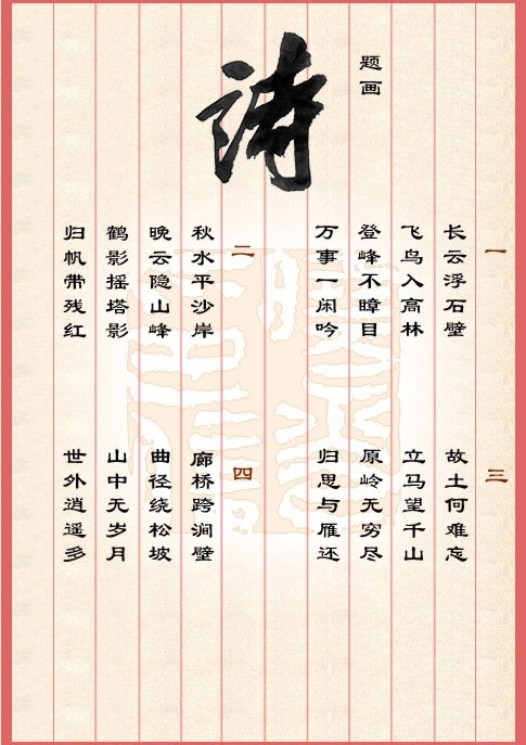 题画
詩
一
长云浮石壁
飞鸟入高林
登峰不瞕目
万事一闲吟
二
秋水平沙岸
晚云隐山峰
鹤影摇塔影
归帆带残红
三
故土何难忘
立马望千山
原岭无穷尽
归思与雁还
四
廊桥跨涧壁
曲径绕松坡
山中无岁月
世外逍遥多